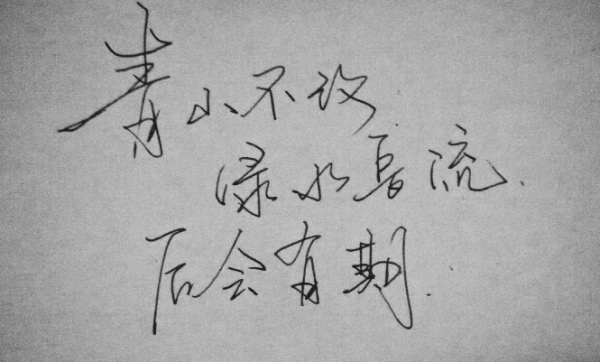 青山不改
渌水流.
后会有期.